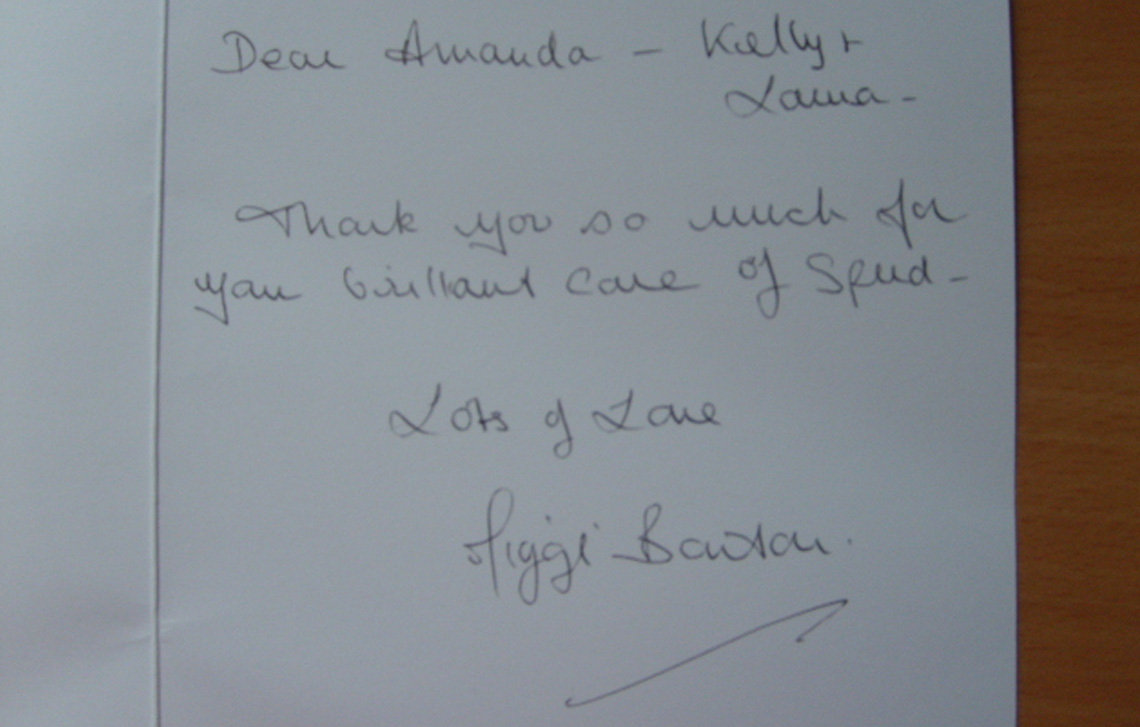 Dear Amanda - Kelly +
Laura -
Thank you so much for
your brilliant care of Spud -
Lots of Love
Barton.